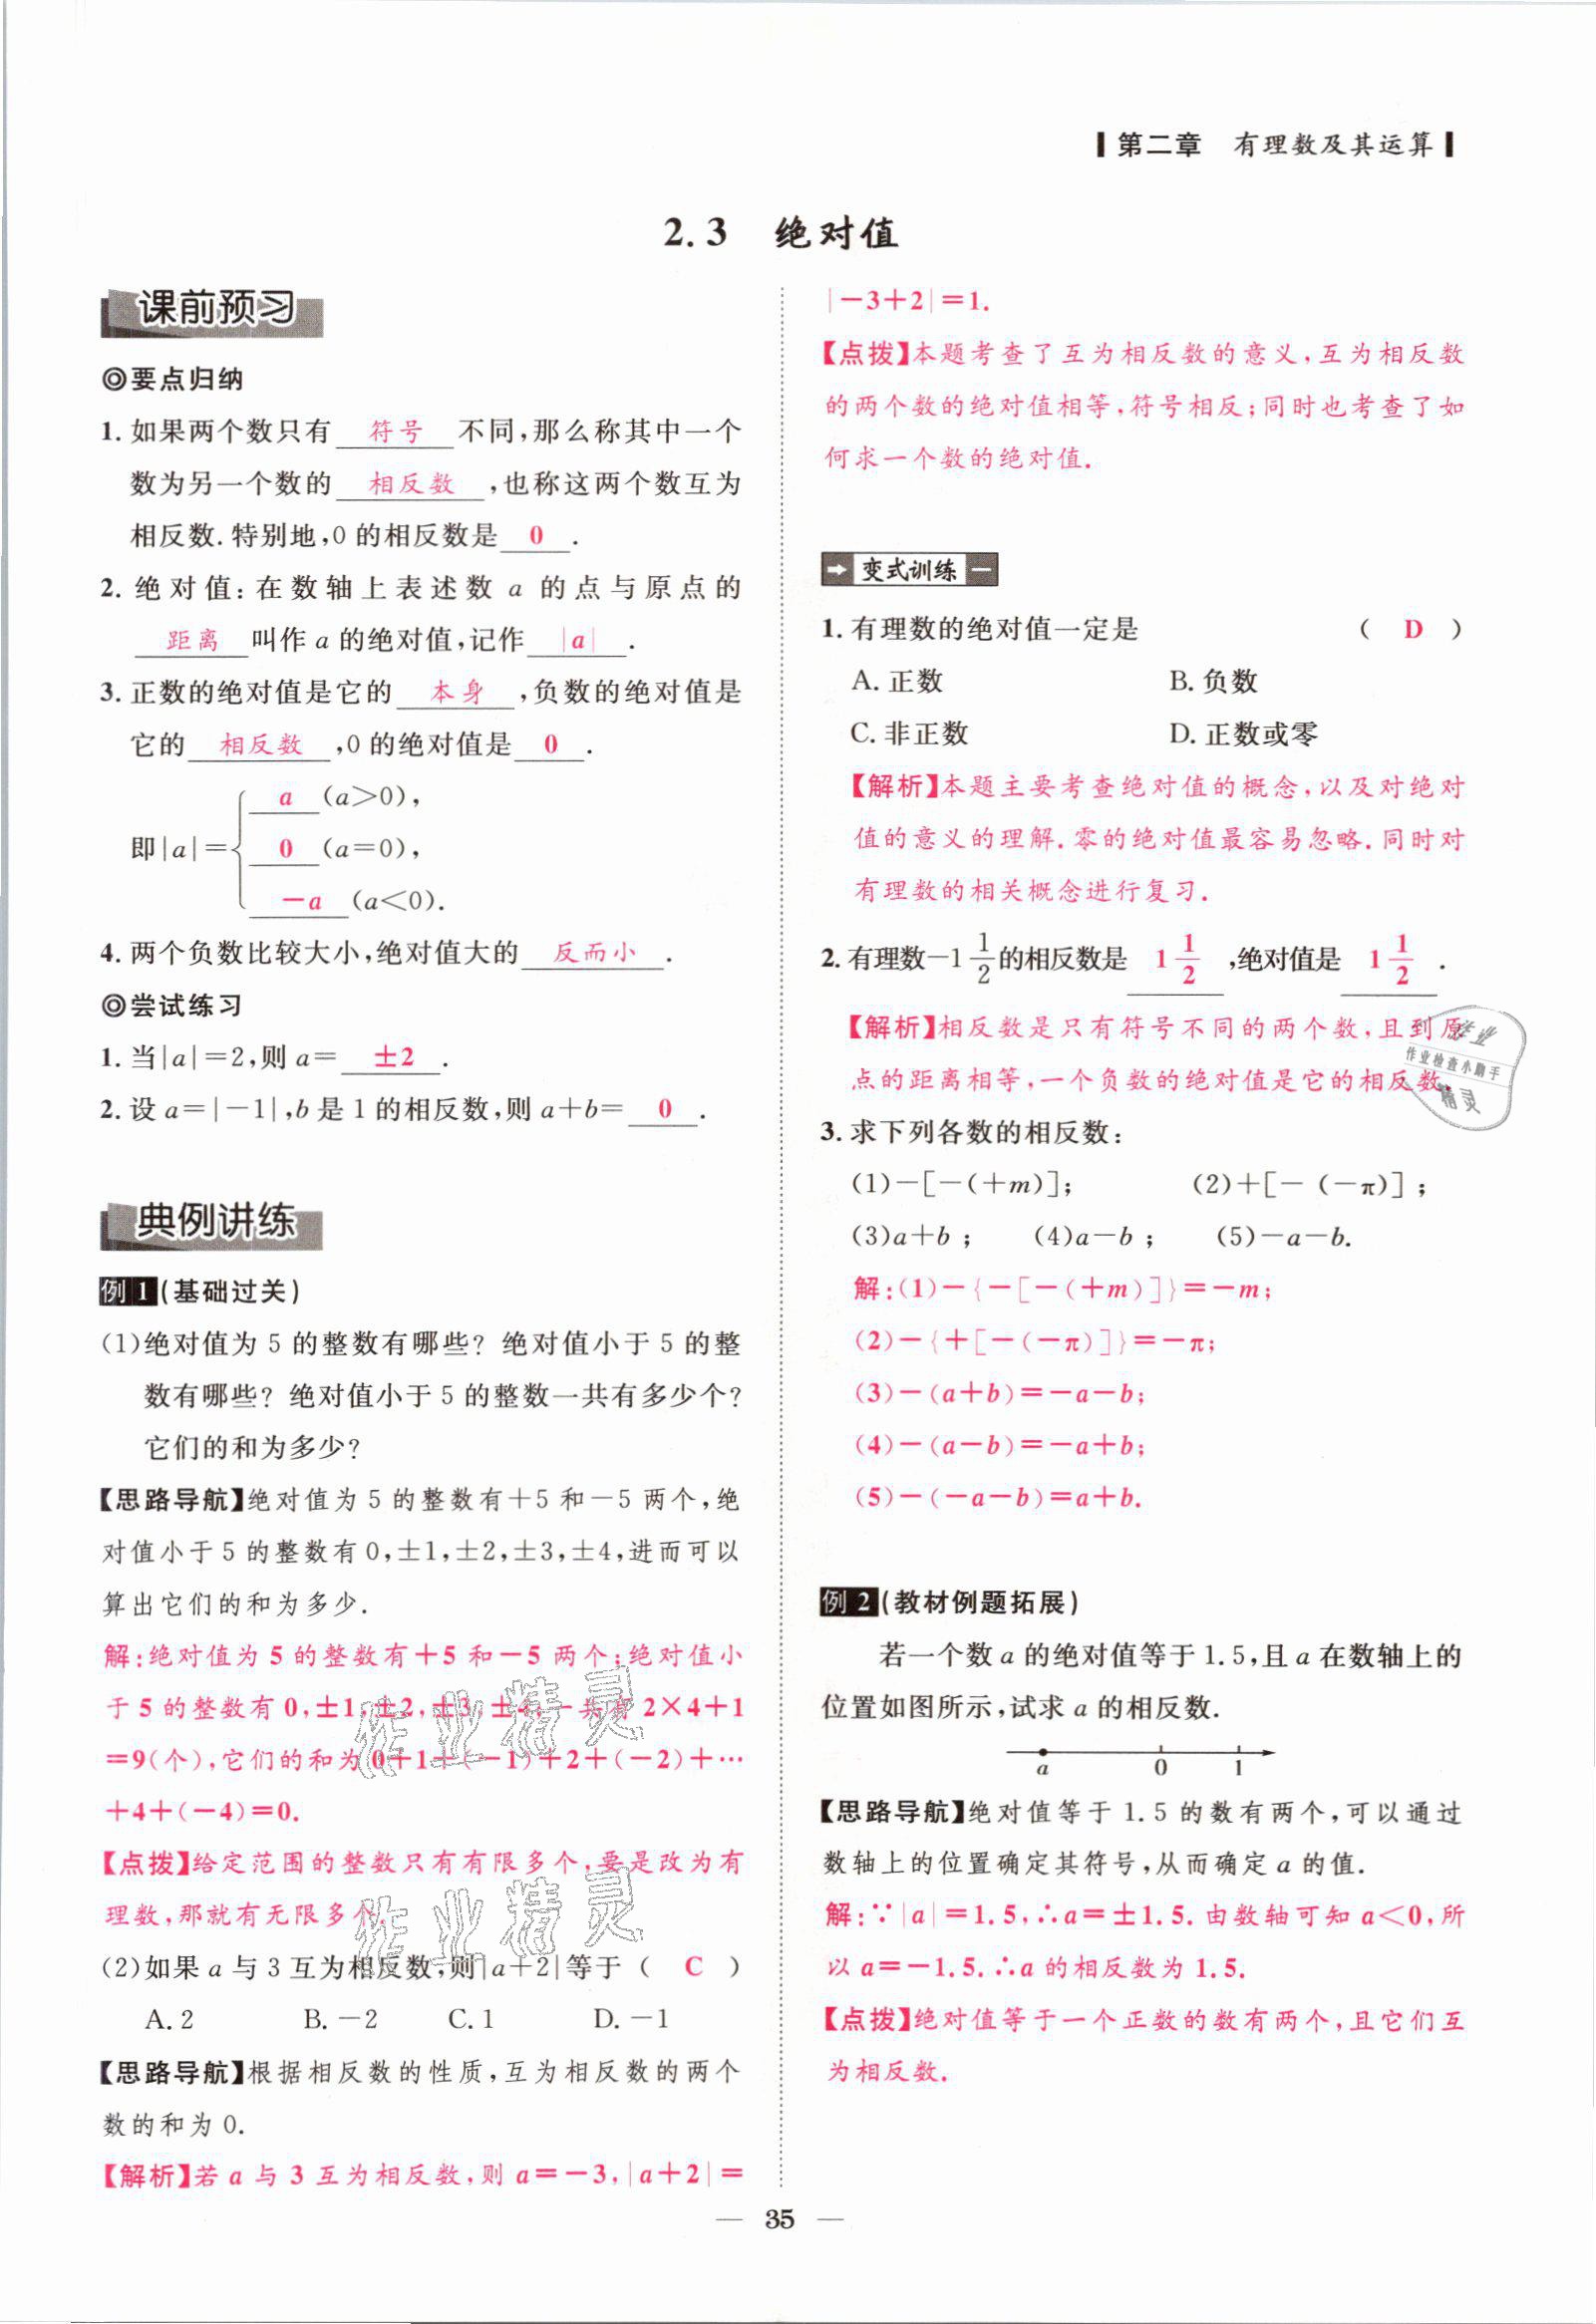 第二章 有理数及其运算
2.3 绝对值
课前预习
◎要点归纳
1. 如果两个数只有 符号 不同,那么称其中一个
数为另一个数的 相反数 ,也称这两个数互为
相反数.特别地,0 的相反数是 0 .
2. 绝对值:在数轴上表述数 a 的点与原点的
距离 叫作 a 的绝对值,记作 |a| .
3. 正数的绝对值是它的 本身 ,负数的绝对值是
它的 相反数 ,0 的绝对值是 0 .
a (a>0),
即|a|={ 0 (a=0),
-a (a<0).
4. 两个负数比较大小,绝对值大的 反而小 .
◎尝试练习
1. 当|a|=2,则 a= ±2 .
2. 设 a=|-1|,b 是 1 的相反数,则 a+b= 0 .
典例讲练
例1(基础过关)
(1)绝对值为 5 的整数有哪些? 绝对值小于 5 的整
数有哪些? 绝对值小于 5 的整数一共有多少个?
它们的和为多少?
【思路导航】绝对值为 5 的整数有+5 和-5 两个,绝
对值小于 5 的整数有 0,±1,±2,±3,±4,进而可以
算出它们的和为多少.
解:绝对值为 5 的整数有+5 和-5 两个;绝对值小
于 5 的整数有 0,±1,±2,±3,±4,一共有 2×4+1
=9(个),它们的和为 0+1+(-1)+2+(-2)+…
+4+(-4)=0.
【点拨】给定范围的整数只有有限多个,要是改为有
理数,那就有无限多个.
(2)如果 a 与 3 互为相反数,则|a+2|等于( C )
A. 2 B. -2 C. 1 D. -1
【思路导航】根据相反数的性质,互为相反数的两个
数的和为 0.
【解析】若 a 与 3 互为相反数,则 a=-3,|a+2|=
|-3+2|=1.
【点拨】本题考查了互为相反数的意义,互为相反数
的两个数的绝对值相等,符号相反;同时也考查了如
何求一个数的绝对值.
变式训练一
1. 有理数的绝对值一定是 ( D )
A. 正数 B. 负数
C. 非正数 D. 正数或零
【解析】本题主要考查绝对值的概念,以及对绝对
值的意义的理解.零的绝对值最容易忽略.同时对
有理数的相关概念进行复习.
2. 有理数-1 1/2 的相反数是 1 1/2 ,绝对值是 1 1/2 .
【解析】相反数是只有符号不同的两个数,且到原
点的距离相等,一个负数的绝对值是它的相反数.
作业
作业检查小助手
精灵
3. 求下列各数的相反数:
(1)-[-(+m)]; (2)+[-(-π)];
(3)a+b; (4)a-b; (5)-a-b.
解:(1)-{-[-(+m)]}=-m;
(2)-{+[-(-π)]}=-π;
(3)-(a+b)=-a-b;
(4)-(a-b)=-a+b;
(5)-(-a-b)=a+b.
例2(教材例题拓展)
若一个数 a 的绝对值等于 1.5,且 a 在数轴上的
位置如图所示,试求 a 的相反数.
a 0 1
【思路导航】绝对值等于 1.5 的数有两个,可以通过
数轴上的位置确定其符号,从而确定 a 的值.
解:∵|a|=1.5,∴a=±1.5.由数轴可知 a<0,所
以 a=-1.5.∴a 的相反数为 1.5.
【点拨】绝对值等于一个正数的数有两个,且它们互
为相反数.
作业精灵
作业精灵
— 35 —